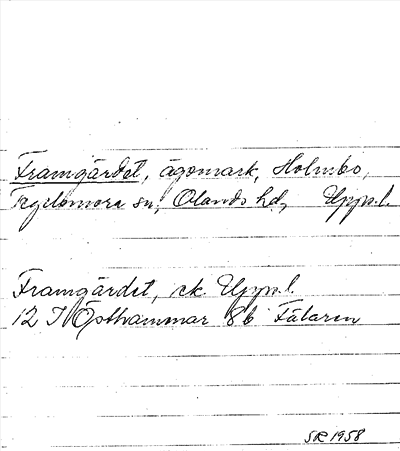 Framgärdet, ägomark, Holmbo,
Tegelsmora sn, Olands hd, Uppl.
Framgärdet, ek. Uppl.
12 I Östhammar 8b Fälaren
SR 1958